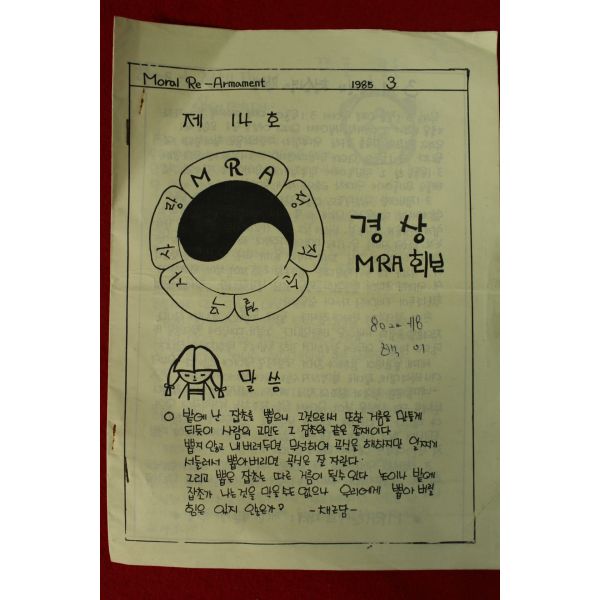 Moral Re-Armament 1985 3
제 14 호
MRA
정직
순결
무사
사랑
경상
MRA 회보
말씀
○ 밭에 난 잡초를 뽑으니 그것으로서 또한 거름을 만들게
되듯이 사람의 고민도 그 잡초와 같은 존재이다
뽑지 않고 내버려두면 무성하여 곡식을 해하지만 일찌기
서둘러서 뽑아버리면 곡식은 잘 자란다.
그리고 뽑은 잡초는 따로 거름이 될수 있다 논이나 밭에
잡초가 나는것을 막을수도 없으나 우리에게 뽑아 버릴
힘은 있지 않은가? -채근담-